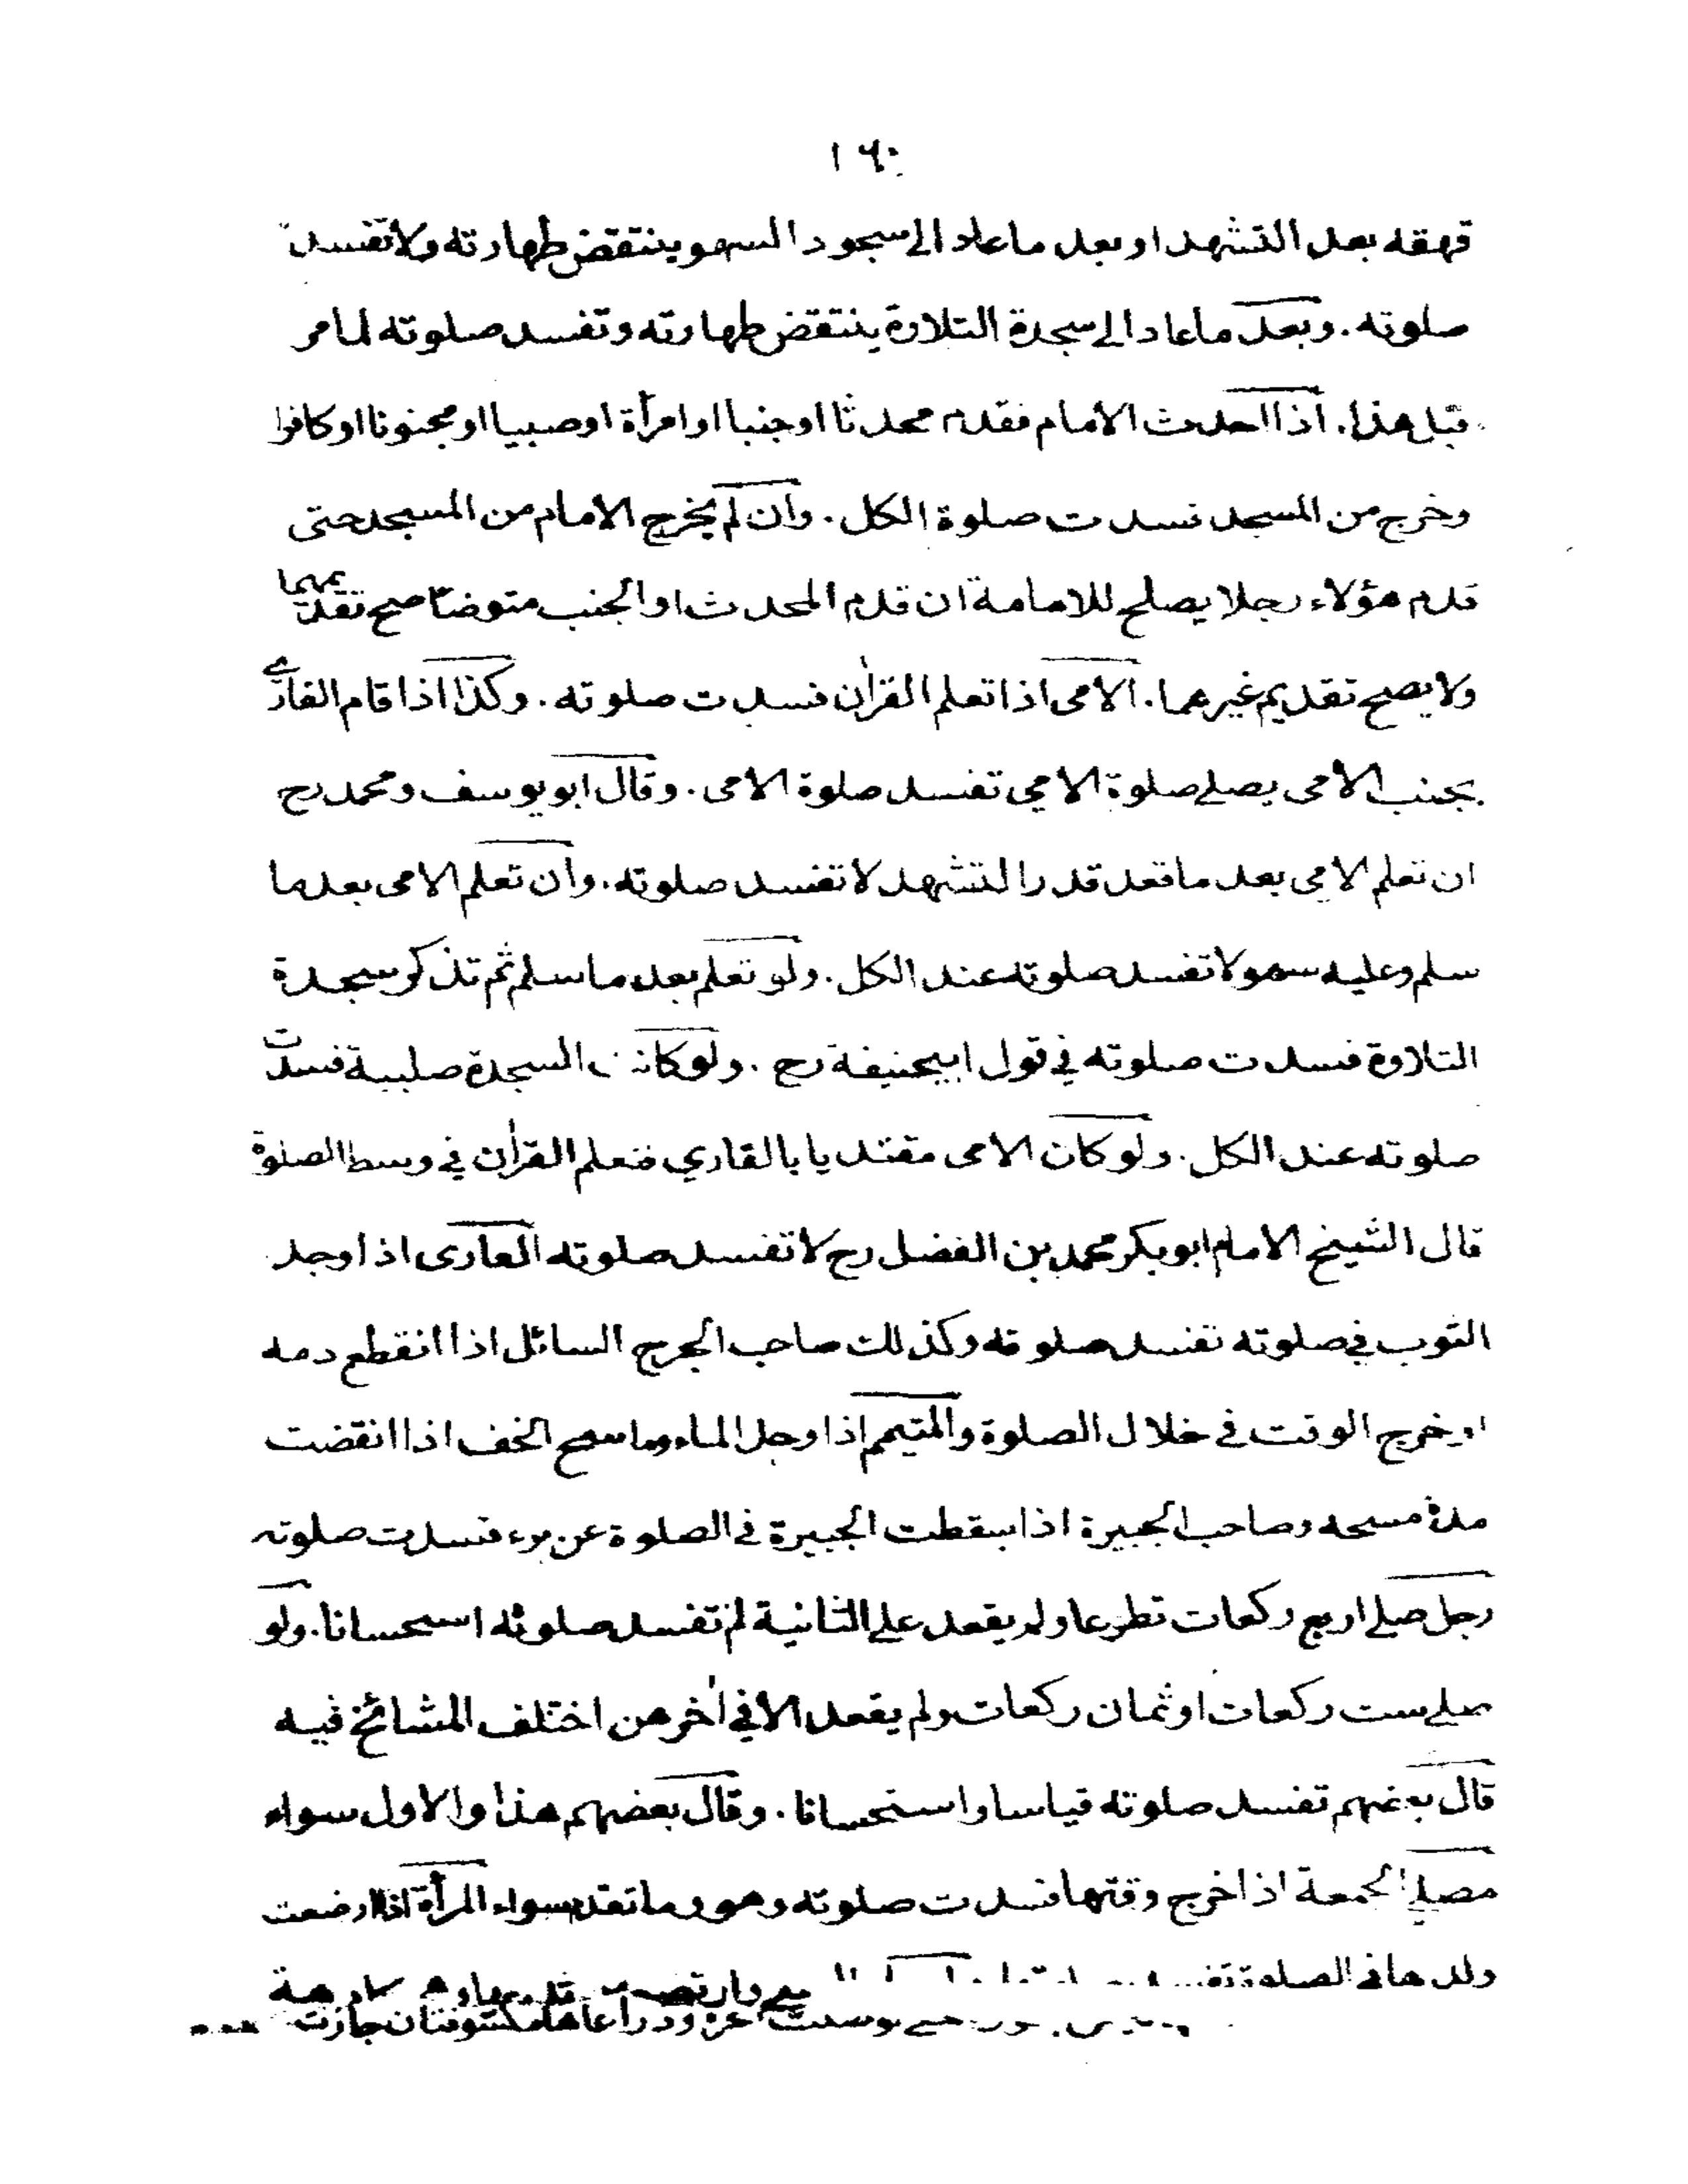 ١٦٠
قهقه بعد التشهد او بعد ما عاد الى سجود السهو ينتقض طهارته ولا تفسد
صلوته . وبعد ما عاد الى سجدة التلاوة ينتقض طهارته وتفسد صلوته لما مر
قبل هذا . اذا احدث الامام فقدم محدثا او جنبا او امرأة او صبيا او مجنونا او كافرا
وخرج من المسجد فسدت صلوة الكل . وان لم يخرج الامام من المسجد حتى
قدم هؤلاء رجلا يصلح للامامة ان قدم المحدث او الجنب متوضئا صح تقديمهما
ولا يصح تقديم غيرهما . الامى اذا تعلم القرأن فسدت صلوته . وكذا اذا قام القارى
بجنب الامى يصلے صلوة الامي تفسد صلوة الامى . وقال ابو يوسف ومحمد رح
ان تعلم الامي بعد ما قعد قدر التشهد لا تفسد صلوته . وان تعلم الامى بعد ما
سلم وعليه سهو لا تفسد صلوته عند الكل . ولو تعلم بعد ما سلم ثم تذكر سجدة
التلاوة فسدت صلوته في قول ابيحنيفة رح . ولو كانت السجدة صلبية فسدت
صلوته عند الكل . ولو كان الامى مقتديا بالقاري فتعلم القرأن في وسط الصلوة
قال الشيخ الامام ابو بكر محمد بن الفضل رح لا تفسد صلوته العارى اذا وجد
الثوب في صلوته تفسد صلوته وكذلك صاحب الجرح السائل اذا انقطع دمه
او خرج الوقت في خلال الصلوة والمتيمم اذا وجد الماء وماسح الخف اذا انقضت
مدة مسحه وصاحب الجبيرة اذا سقطت الجبيرة في الصلوة عن برء فسدت صلوته
رجل صلے اربع ركعات تطوعا ولم يقعد على الثانية لم تفسد صلوته استحسانا . ولو
صلے ست ركعات او ثمان ركعات ولم يقعد الا في أخرهن اختلف المشائخ فيه
قال بعضهم تفسد صلوته قياسا واستحسانا . وقال بعضهم هذا والاول سواء
مصلے الجمعة اذا خرج وقتها فسدت صلوته وهو وما تقدم سواء المرأة اذا ارضعت
ولدها في الصلوة
وذراعاها مكشوفتان جازت